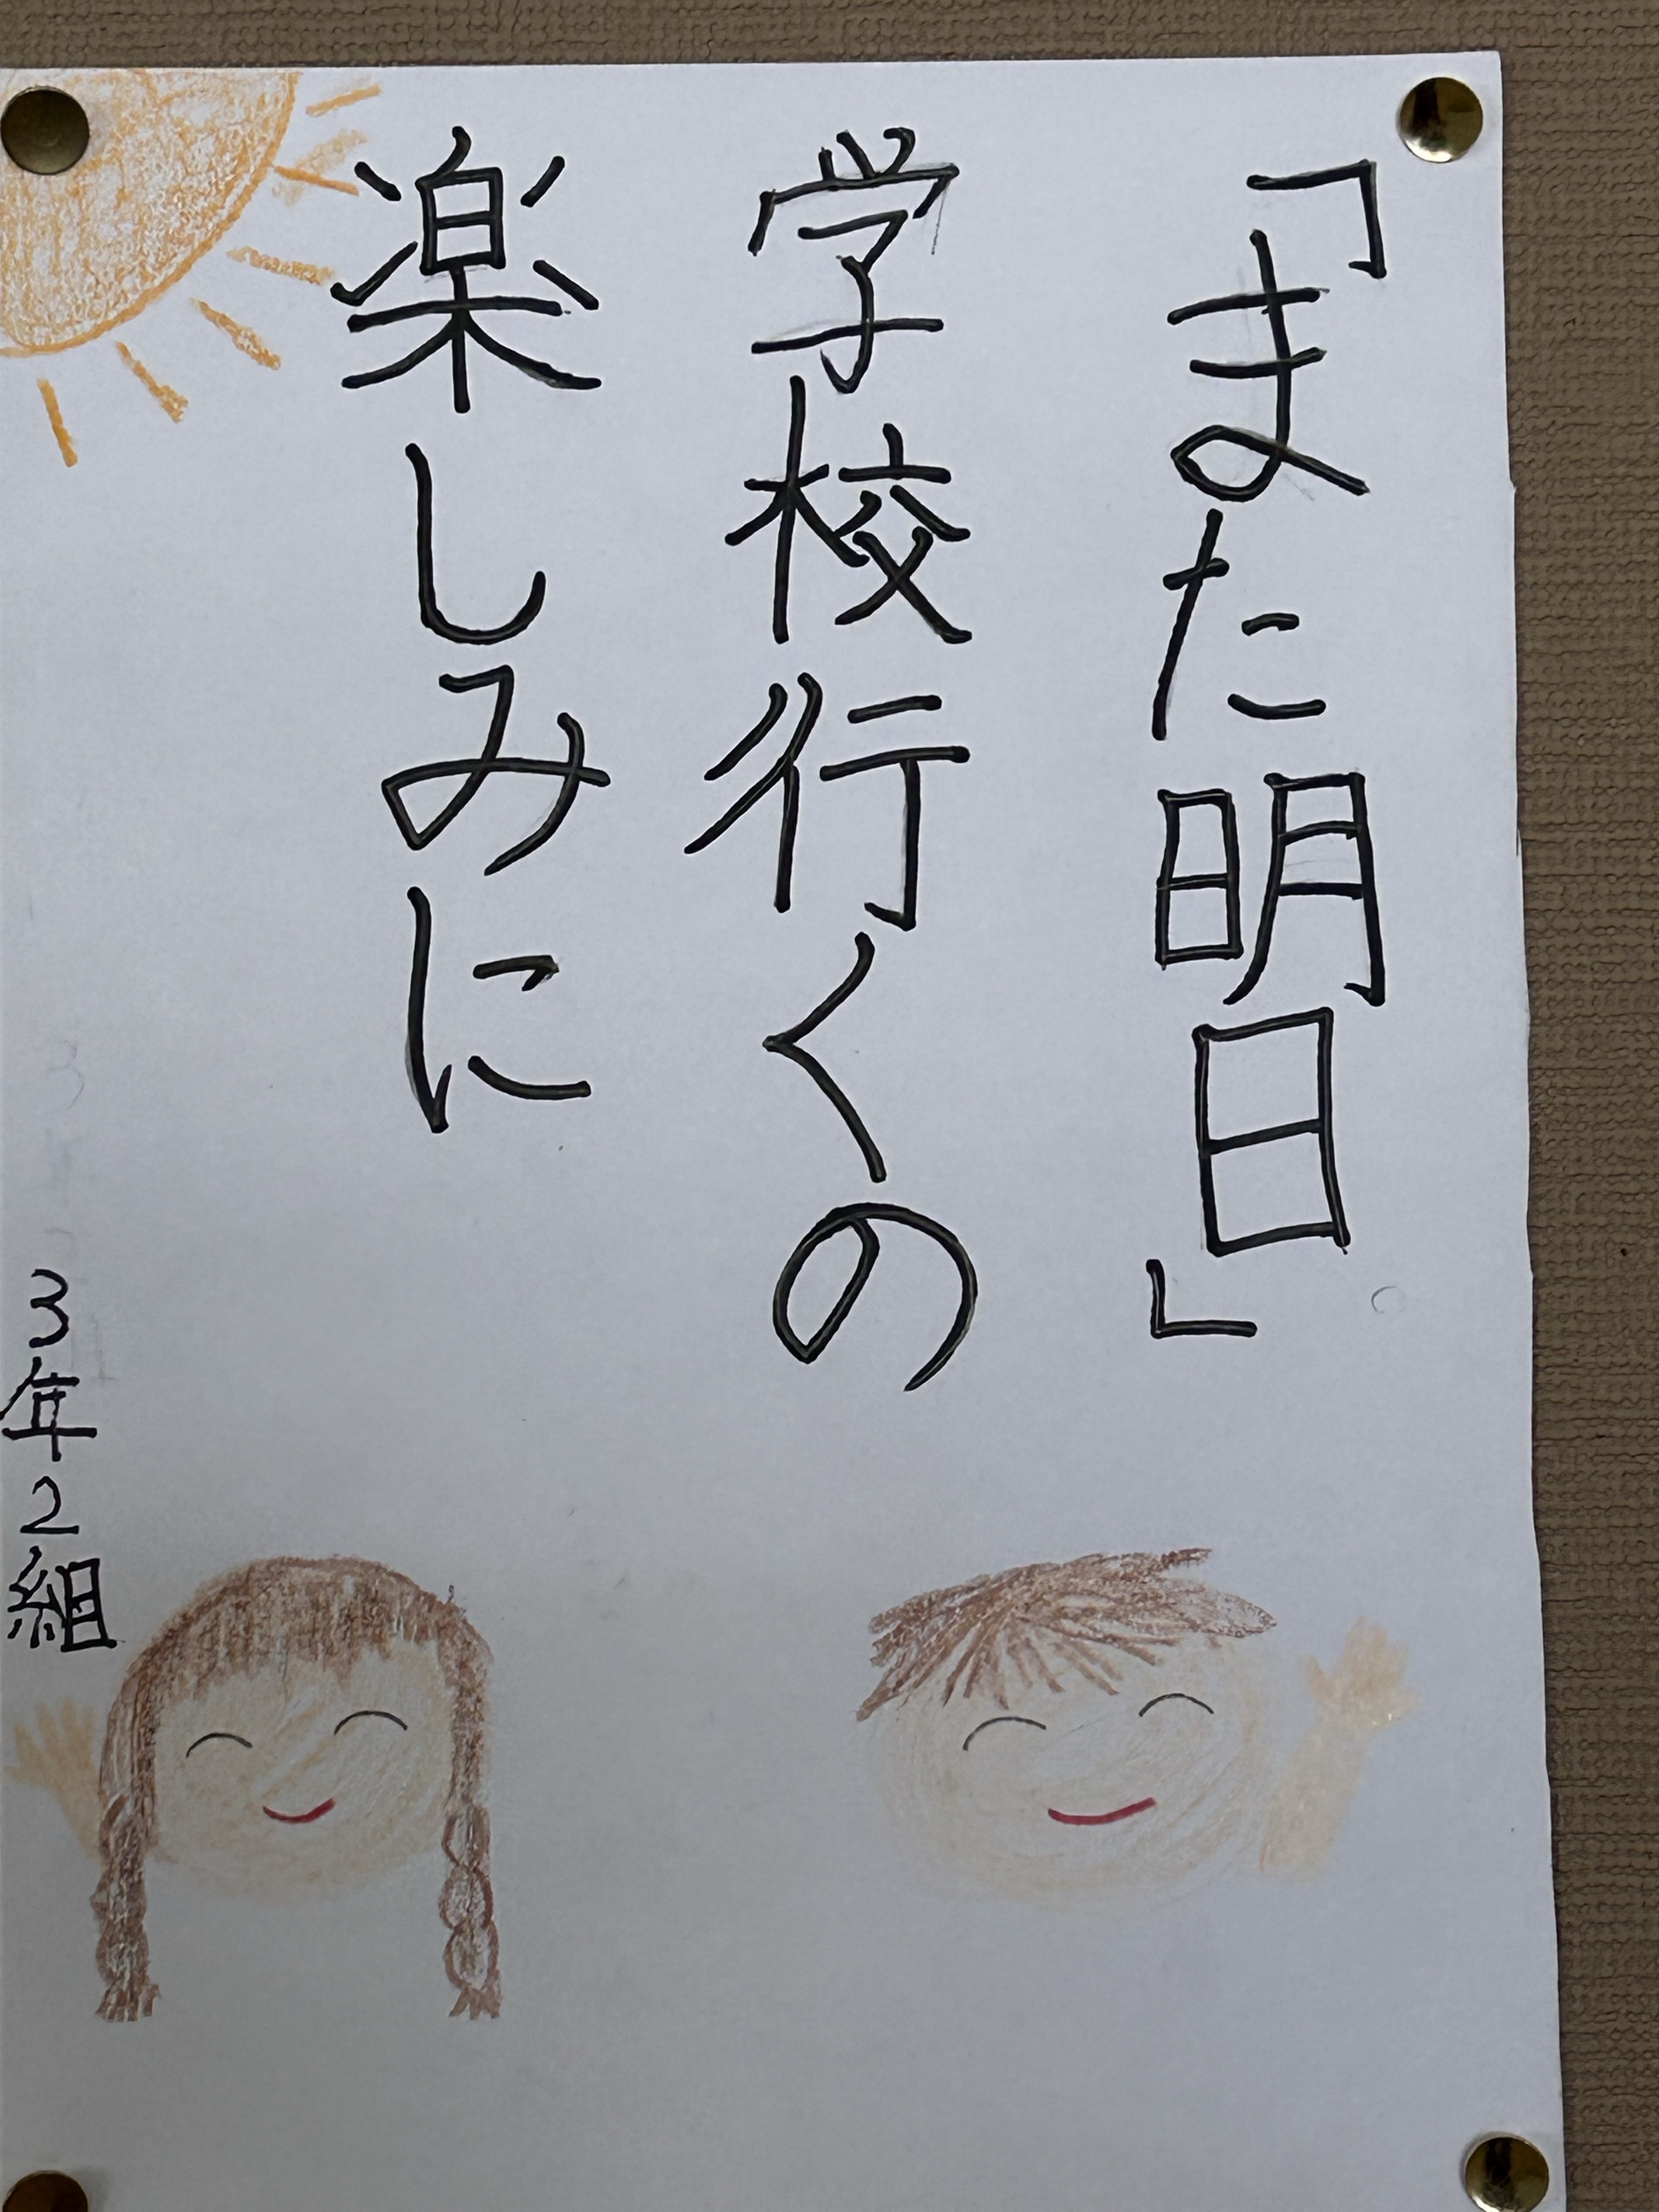 「また明日」
学校行くの
楽しみに
3年2組